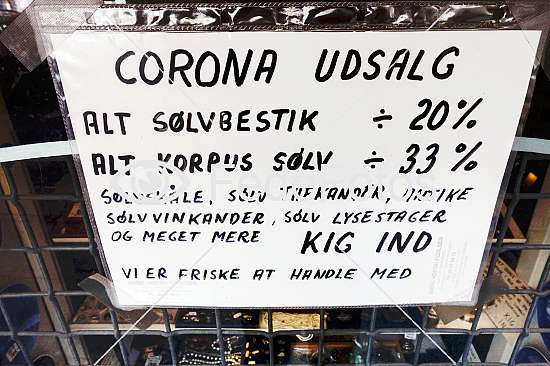 CORONA UDSALG
ALT SØLVBESTIK ÷ 20%
ALT KORPUS SØLV ÷ 33%
SØLVSKÅLE, SØLV THEKANDER, ANTIKE
SØLV VINKANDER, SØLV LYSESTAGER
OG MEGET MERE KIG IND
VI ER FRISKE AT HANDLE MED